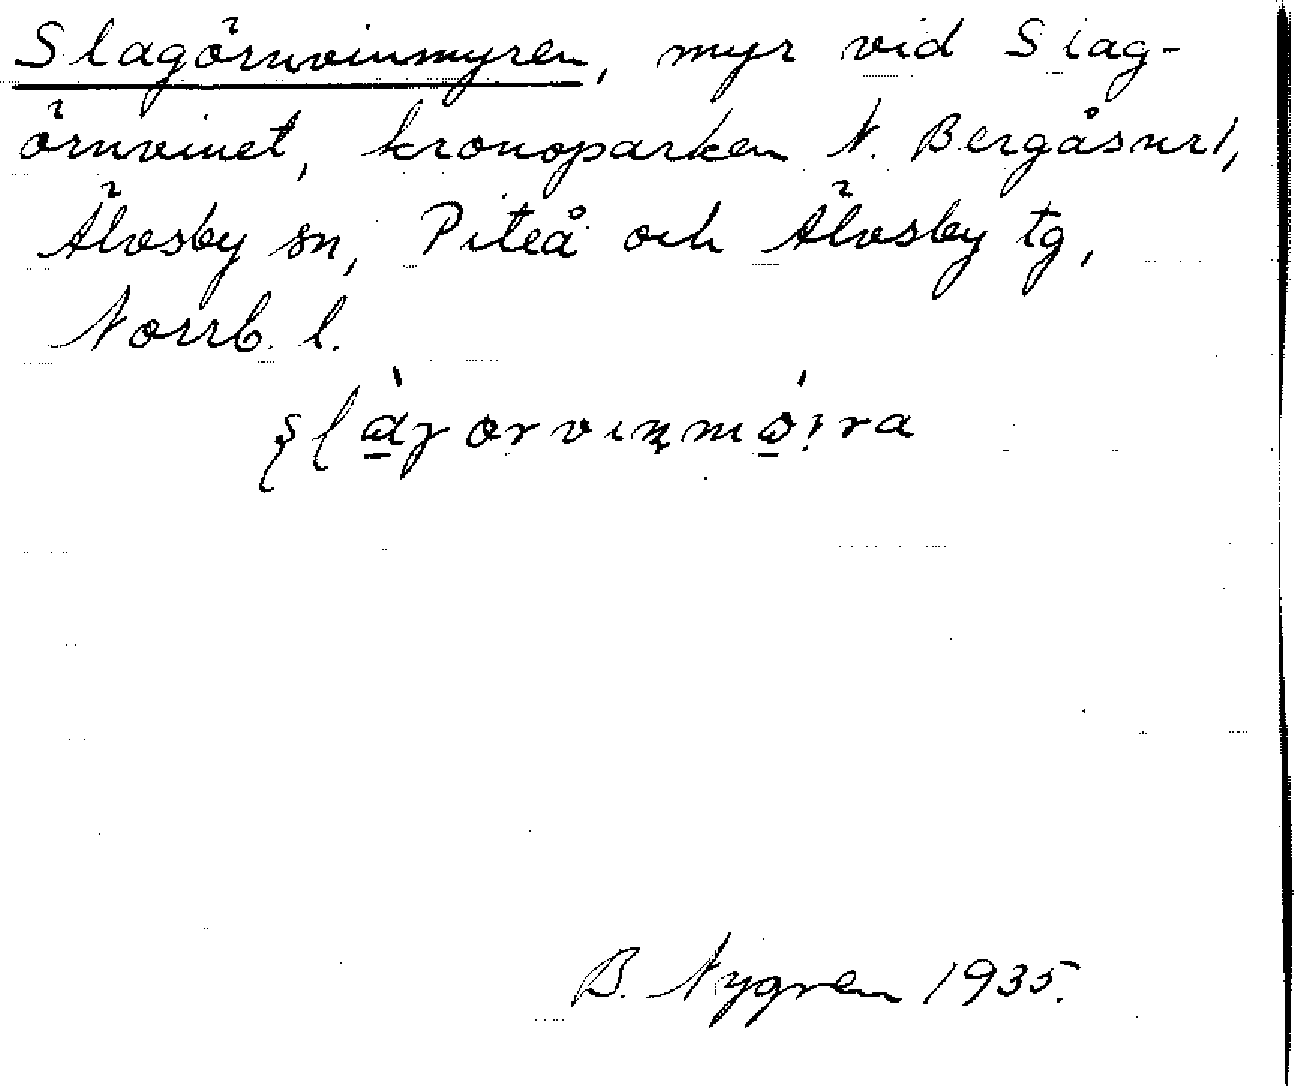 Slagörnvinmyren, myr vid Slag-
örnvinet, kronoparken N. Bergåsnr 1,
Älvsby sn, Piteå och Älvsby tg,
Norrb. l.
B. Nygren 1935.